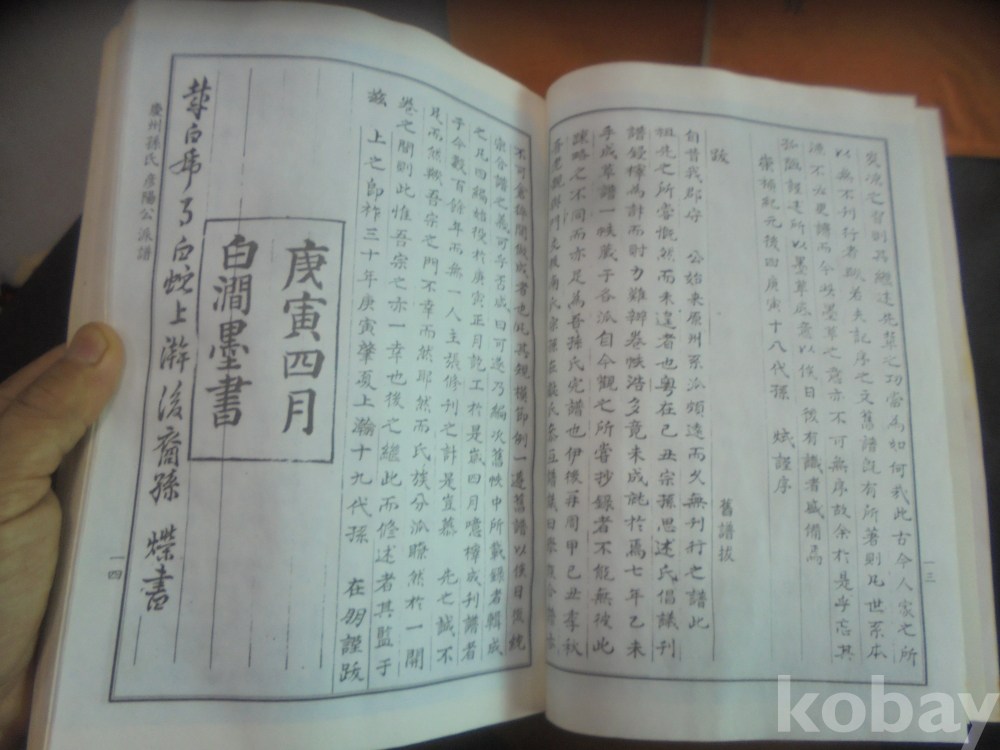 之習則其繼述先業之功當爲如何哉此古今人家之所
以無不刊行者歟若夫記序之文舊譜旣有所著則凡世系本
源不必更讀而今此墨草之意亦不可無序故余於是乎忘其
謹述所以墨草意以俟日後有識者盛備焉
崇禎紀元後四庚寅十八代孫 斌謹序
跋 舊譜拔
自昔我郡守 公始来原州系派頗遠而久無刊行之譜此
祖先之所嘗慨然而未遑者也粤在己丑宗孫思述氏倡議刊
譜鋟梓爲計而財力難辦卷帙浩多竟未成就於焉七年乙未
手成草譜一帙藏于各派自今觀之所嘗抄録者不能無彼此
踈略之不同而亦足爲吾孫氏完譜也伊後再周甲己丑季秋
一三
不可倉猝間做成者也凡其規模節例一遵舊譜以俟日後統
宗合譜之義可乎否咸曰可遂乃編次舊帙中所載録者輯成
之凡四編始役於庚寅正月訖工於是歲四月噫檸成刊譜者
于今數百餘年而無一人主張修刊之計是豈慕先之誠不
足而然歟吾宗之門不幸而然耶然而氏族分派瞭然於一開
卷之間則此惟吾宗之亦一幸也後之繼此而修述者其監于
玆 上之卽祚三十年庚寅肇夏上瀚十九代孫 在朋謹跋
庚寅四月
白澗墨書
白虎了白蛇上澣後裔孫 書
慶州孫氏彦陽公派譜
一四
kobay